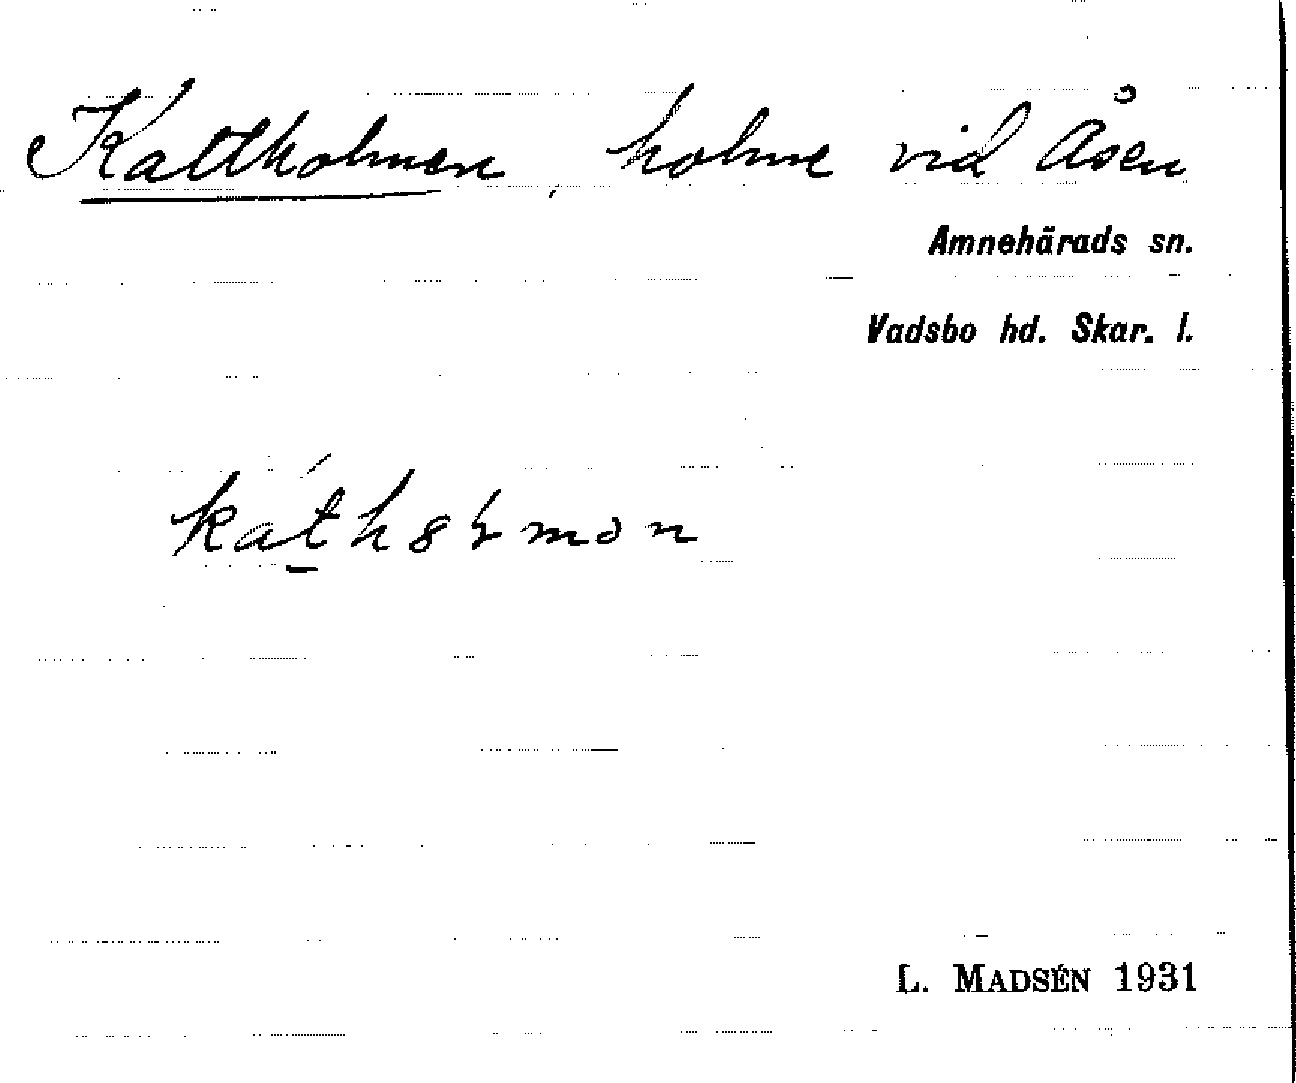 Kattholmen, holme vid Åsen
Amnehärads sn.
Vadsbo hd. Skar. l.
L. MADSÉN 1931